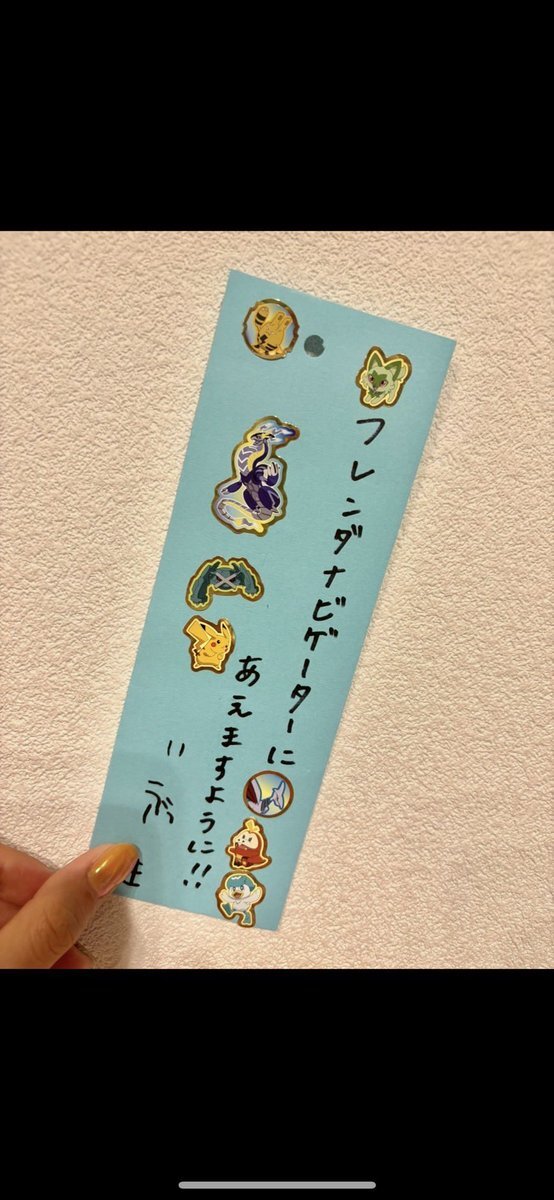 フレンダナビゲーターに
あえますように!!